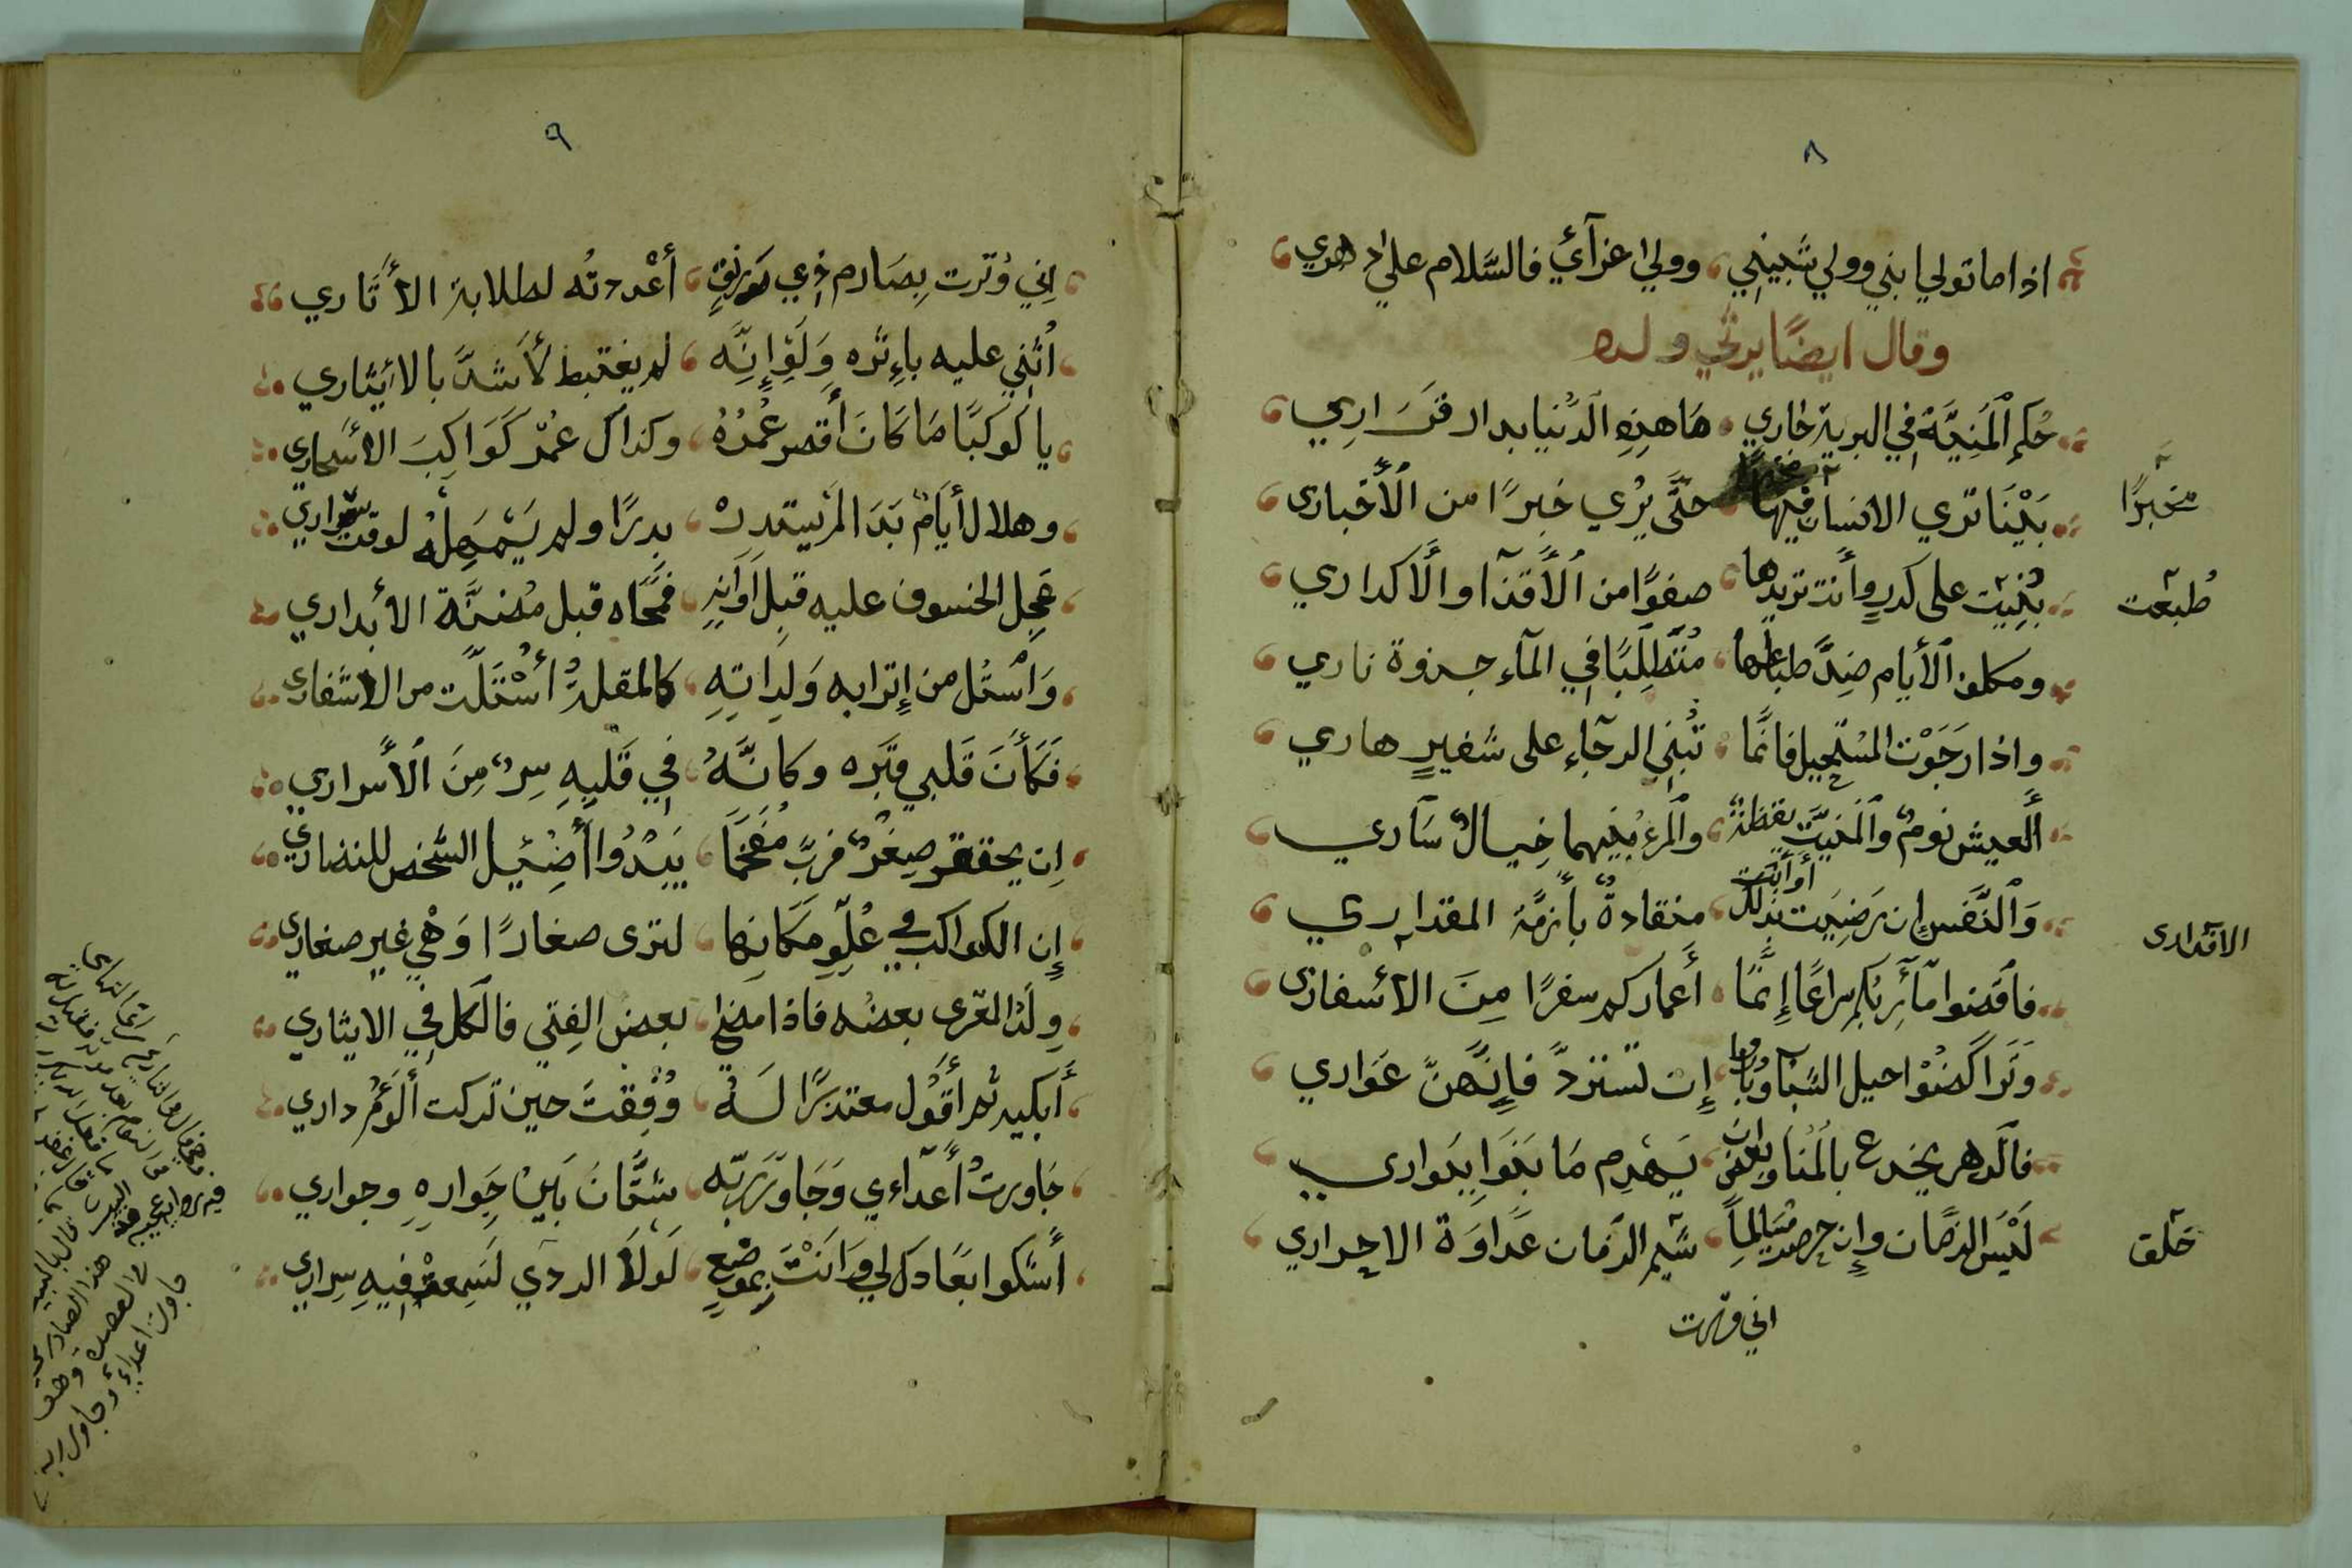 ٨
اذا ما تولي ابني وولي شبيبني وولي اعزآئي فالسلام علي دهري
وقال ايضًا يرثي ولده
حُكم ٱلمَنِيَّة فِي البرية جاري مَا هذِهِ الدُّنيا بدار قَرَارِي
بَيْنَا تري الانسان فيها حتَّى يُري خبرًا من الأَخباري
مخبرًا
بُنِيت على كدرٍ وأَنت تريدها صفوًا من الأَقذآ والأَكداري
طُبعت
ومكلف ٱلأيام ضِدَّ طباعها مُتَطلِّبًا فِي المآء جذوة ناري
وإذا رَجَوْت المسْتحيل فانَّما تُبْنِي الرجآء على شفيرٍ هاري
أَلعيش نومٌ والمَنيَّت يقظةٌ والمرءُ بينهما خيالٌ سَآري
وَٱلنَّفس إن رَضِيَت بذلك أو أبت منقادةٌ بأَزمَّة المقداري
الاقداري
فٱقضوا مآرِبُكم سِراعًا إِنَّمَا أَعماركم سفرًا مِنَ الأسفاري
وَتَراكَضُوْا خيل الشباب وبادروا إن تستردَّ فإِنَّهنَّ عَوَاري
فٱلدهر يخدع بالمُنا ويغص ان يَهْدِم مَا بَنَوَا بِبَواري
لَيْسَ الزمان وإن حرصت مُسَالِمًا شيم الزمان عَدَاوَة الاحراري
خلق
اني وترت
٩
إني وُترت بِصَارم ذِي رَونقٍ أعْددتُه لطلابة الأَثاري
أُثنِي عليه بإِثره وَلَوِ إنّه لم يغتبط لأَشدَّ بالاثاري
يا كوكبًا مَا كَانَ أَقصر عُمْرُهُ وكذاك عمْر كَوَاكِبَ الاسْحاري
وهلال أَيَامٌ بَدَا لم يستدرْ بدرًا ولم يَمْهِلْهُ لوقت سَراري
عَجِلَ الخسوف عليه قبل أَوَانِهِ فمَحَاه قبل مضنَّة الأبداري
وَٱسْتل من إِترابه وَلِدَاتِهِ كالمقلةِ أُسْتَلَّت من الاشفاري
فَكَأَنَ قَلبي قبْره وكانَّهُ فِي قَلبِهِ سِرٌ مِنَ ٱلأَسراري
إن يحتقر صِغَرٌ فربَّ مُفَخَمَاً يَبْدُوا أَضِئيل الشَخص للنضاري
إن الكواكب في عُلِوِ مَكَانِها لترى صغارًا وَهْي غير صغاري
وِلَدُ المعزى بعضه فاذا مضي بعض الفِتي فالكل فِي الايثاري
أَبكيه ثم أَقُول معتذرًا لَهُ وُفِقتَ حين تركت أَلَؤَمُ داري
جَاورتُ أَعدآءي وَجَاوَرَ رَبّه شتَّانَ بَيْنَ جِوارِهِ وجواري
أَشكوا بعَادك لي وَانتَ بموْضعٍ لَولا الردي لَسَمِعتْ فِيهِ سِراري
جاورت اعداءِي وجاور ربه